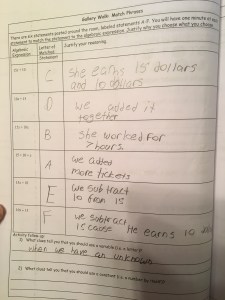 Gallery Walk: Match Phrases
There are six statements posted around the room, labeled statements A-F. You will have one minute at each
statement to match the statement to the algebraic expression. Justify why you choose what you chose.
Algebraic Expression
Letter of Matched Statement
Justify your reasoning.
C
She earns 15 dollars
and in dollars
D
we added it
together
B
She worked for
7 hours
A
we added
more tickets
E
we subtract
10 from 15
F
we subtract
He earns 10
Activity Follow-Up
1) What clues tell you that you should use a variable (i.e. a letter)?
when we have an unknown
2) What clues tell you that you should use a constant (i.e. a number by itself)?